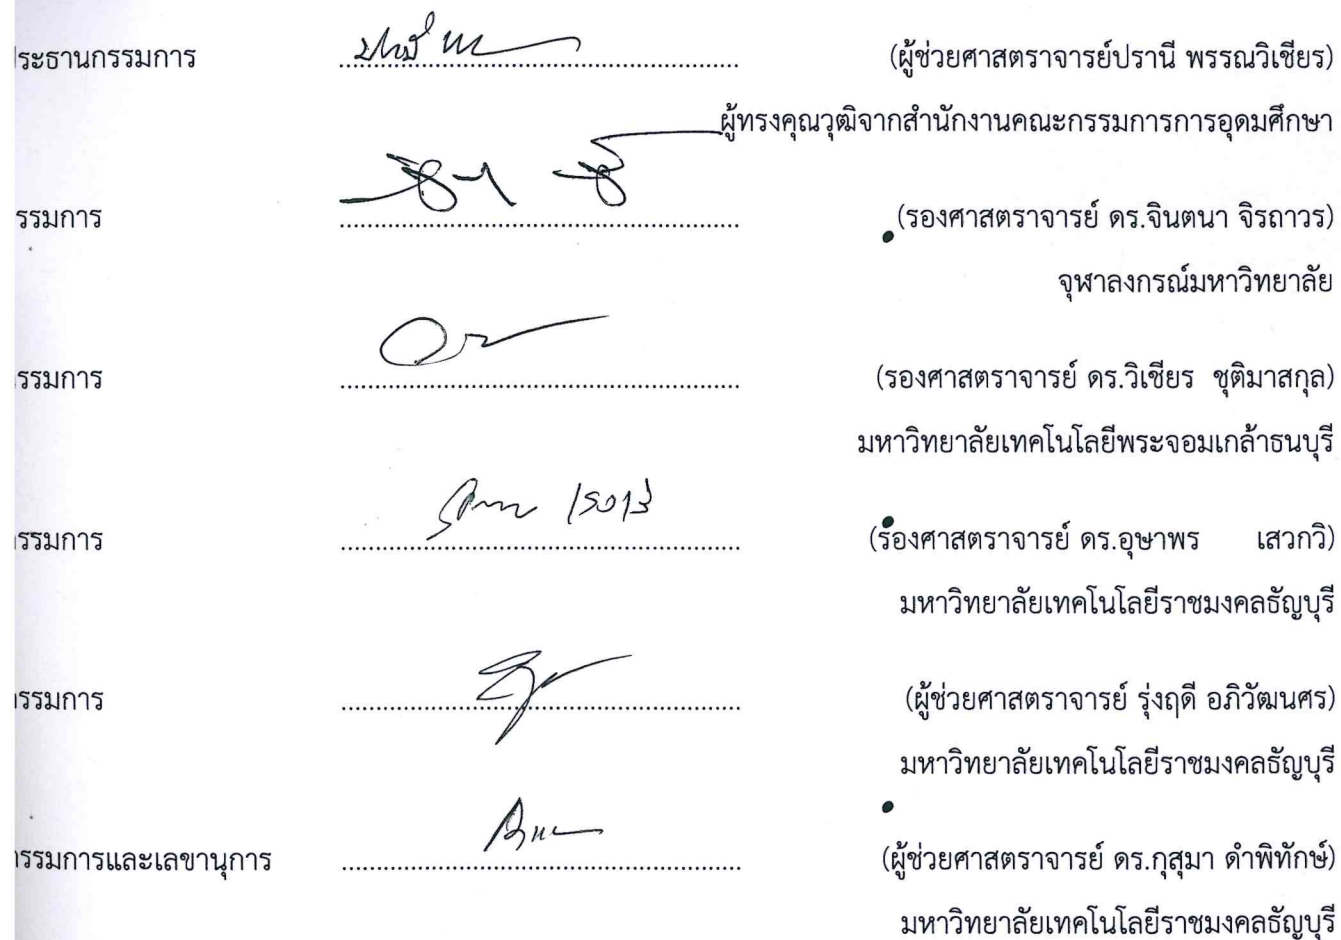 ระธานกรรมการ (ผู้ช่วยศาสตราจารย์ปรานี พรรณวิเชียร)
ผู้ทรงคุณวุฒิจากสำนักงานคณะกรรมการการอุดมศึกษา
รรมการ (รองศาสตราจารย์ ดร.จินตนา จิรถาวร)
จุฬาลงกรณ์มหาวิทยาลัย
รรมการ (รองศาสตราจารย์ ดร.วิเชียร ชุติมาสกุล)
มหาวิทยาลัยเทคโนโลยีพระจอมเกล้าธนบุรี
รรมการ (รองศาสตราจารย์ ดร.อุษาพร เสวกวิ)
มหาวิทยาลัยเทคโนโลยีราชมงคลธัญบุรี
รรมการ (ผู้ช่วยศาสตราจารย์ รุ่งฤดี อภิวัฒนศร)
มหาวิทยาลัยเทคโนโลยีราชมงคลธัญบุรี
รรมการและเลขานุการ (ผู้ช่วยศาสตราจารย์ ดร.กุสุมา ดำพิทักษ์)
มหาวิทยาลัยเทคโนโลยีราชมงคลธัญบุรี